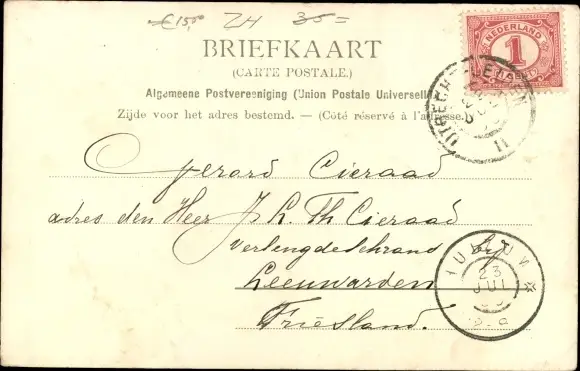 €15,00 ZH 35=
BRIEFKAART
(CARTE POSTALE.)
Algemeene Postvereeniging (Union Postale Universelle)
Zijde voor het adres bestemd. — (Côté réservé à l'adresse.)
NEDERLAND
1
UTRECHT
11
Gerard Cieraad
adres den Heer J. L. Th Cieraad
Verlengde Schrans bij
Leeuwarden
Friesland.
HUIZUM
23
JUL